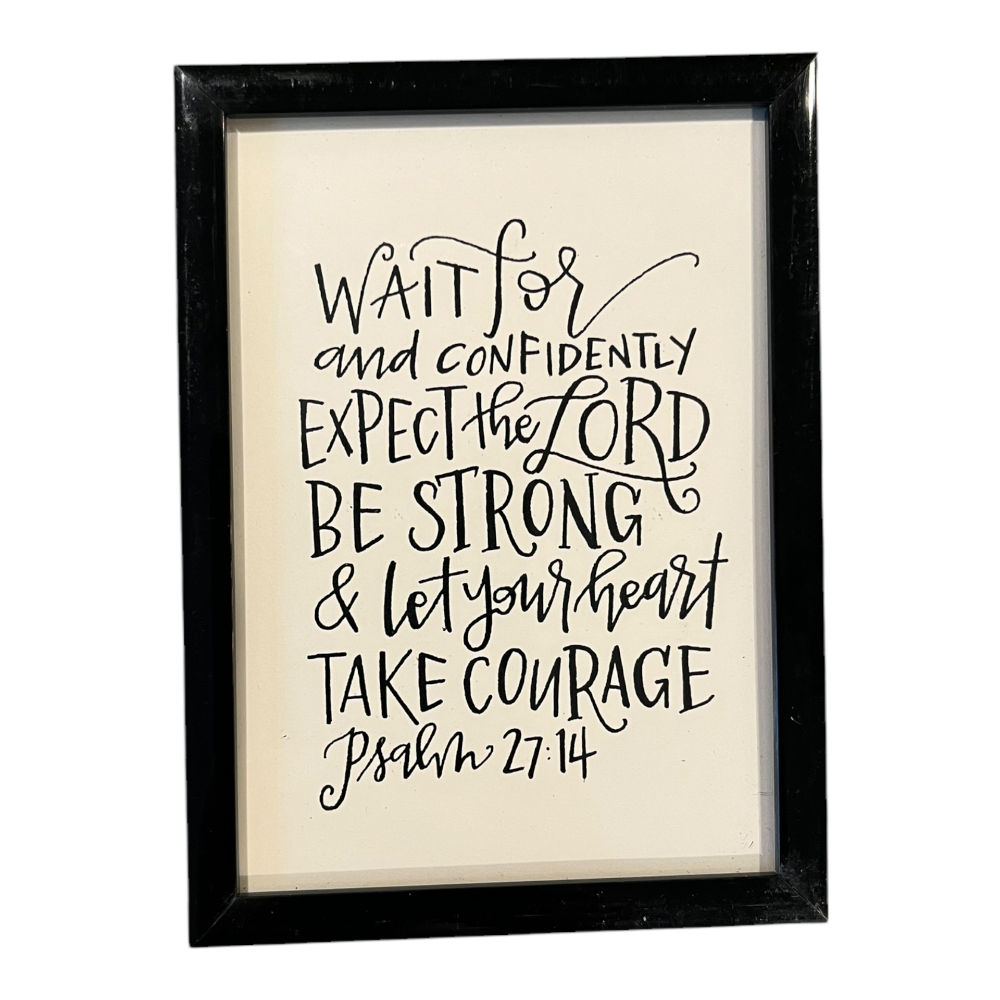 WAIT for
and CONFIDENTLY
EXPECT the LORD
BE STRONG
& let your heart
TAKE COURAGE
Psalm 27:14